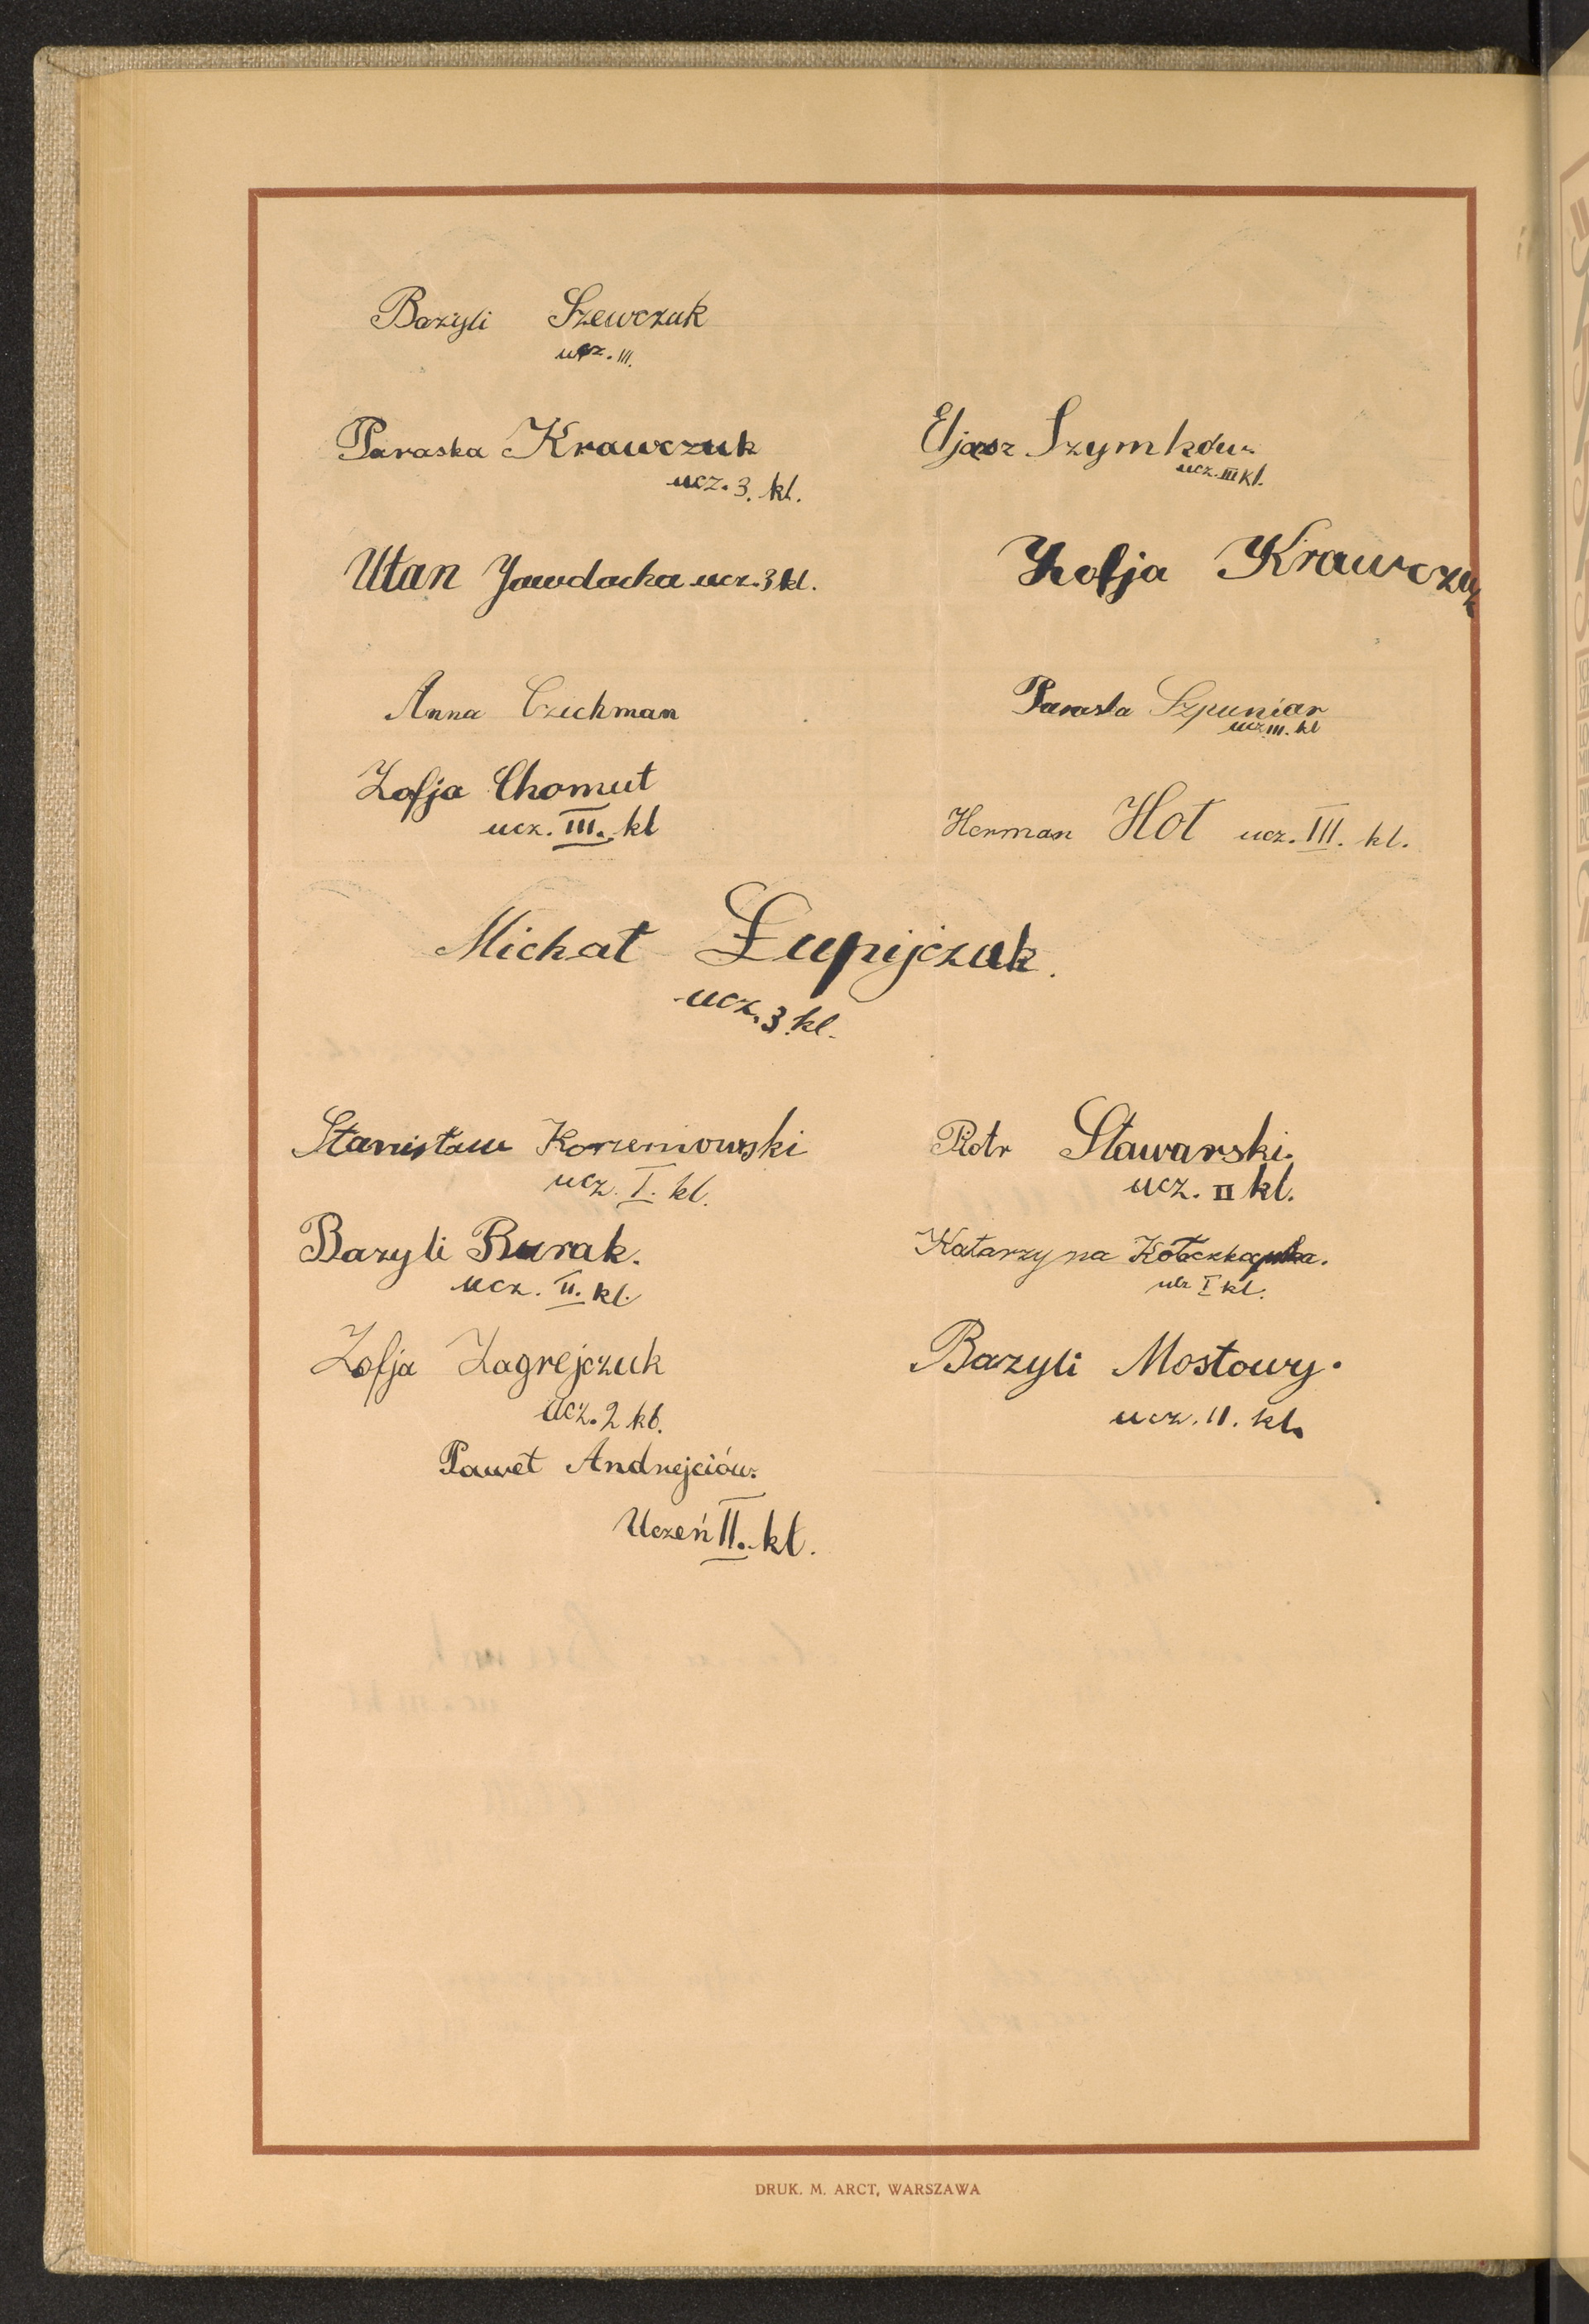 Bazyli Szewczuk
ucz. III.
Paraska Krawczuk
ucz. 3. kl.
Eljasz Szymków
ucz. III kl.
Ułan Jawdocka ucz. 3 kl.
Zofja Krawczuk
Anna Czichman
Paraska Szpuniar
ucz III. kl
Zofja Chomut
ucz. III. kl
Herman Hot ucz. III. kl.
Michał Łupijczuk.
ucz. 3 kl.
Stanisław Korzeniowski
ucz. I. kl.
Piotr Stawarski.
ucz. II kl.
Bazyli Burak.
ucz. II. kl.
Katarzyna
I kl.
Zofja Zagrejczuk
ucz. 2 kl.
Bazyli Mostowy.
ucz. II. kl.
Paweł Andrejciów.
Uczeń II. kl.
DRUK. M. ARCT, WARSZAWA